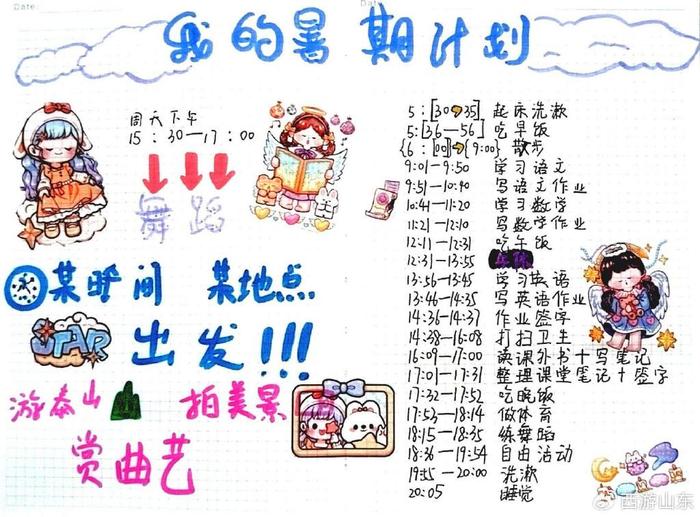 Date:
Date:
我的暑期计划
周天下午
15:30—17:00
舞蹈
某时间 某地点
STAR
出发!!!
游泰山 拍美景
赏曲艺
5:[30→35] 起床洗漱
5:[36—56] 吃早饭
{6:00}→{9:00} 散步
9:01—9:50 学习语文
9:51—10:40 写语文作业
10:41—11:20 学习数学
11:21—12:10 写数学作业
12:11—12:31 吃午饭
12:31—13:55
13:56—13:45 学习英语
13:46—14:35 写英语作业
14:36—14:37 作业签字
14:38—16:08 打扫卫生
16:09—17:00 读课外书+写笔记
17:01—17:31 整理课堂笔记+签字
17:32—17:52 吃晚饭
17:53—18:14 做体育
18:15—18:35 练舞蹈
18:36—19:54 自由活动
19:55—20:00 洗漱
20:05 睡觉
西游山东